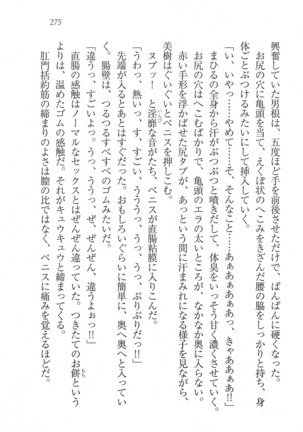 275
興奮していた男根は、五度ほど手を前後させただけで、ぱんぱんに硬くなった。
お尻の穴に亀頭を当て、えくぼ状のへこみをきざんだ腰の脇をしっかりと持ち、身
体ごとぶつけるみたいにして挿入していく。
「い、いやっ……やめて……そ、そんなこと……あぁぁあぁああっ、きゃああぁあ!!」
まひるの全身から汗がぶつぶつと噴きだして、体臭をいっそう甘く濃くさせていく。
お尻の穴はへこむばかりで、亀頭のエラの太いところが、なかなか奥に入らない。
赤い手形を浮かばせた尻タブが、あっという間に汗まみれになる様子を見ながら、
美樹はぐいぐいとペニスを押しこむ。
ヌプッー! と淫靡な音がたち、ペニスが直腸粘膜に入りこんだ。
「うわっ、熱いっ、す、すごい、ううっ、う、うっ、ぷりぷりだっ!!」
先端が入るとあとはすぐだった。おもしろいぐらいに簡単に、奥へ奥へと入ってい
く。腸壁は、つるつるすべすべのゴムみたいだ。
「違うっ、すごいよっ。うっ、ううっ、ぜ、ぜんぜん、違うよぉっ!!」
直腸の感触はノーマルなセックスとはぜんぜん違っていた。つきたてのお餅という
よりは、温めたゴムの感触だ。それがキュウキュウと締まってくる。
肛門括約筋の締まりのよさは膣の比ではなく、ペニスに痛みを覚えるほどだ。